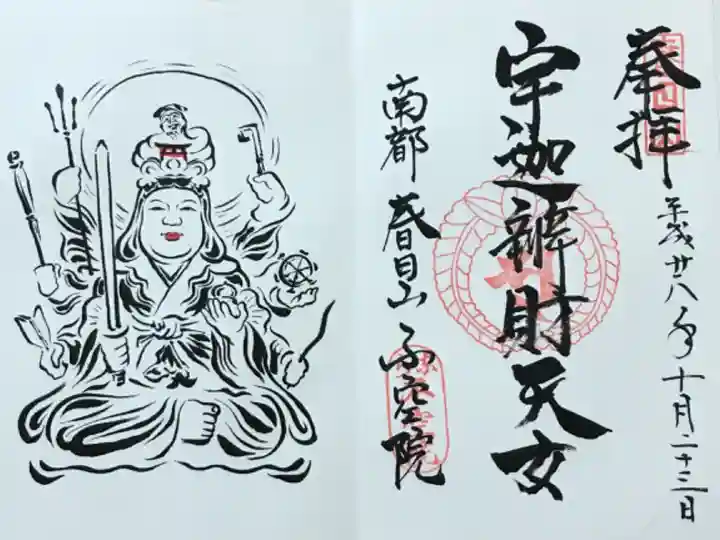 奉拝
平成廿八年十月二十三日
宇迦辨財天女
南都 春日山 不空院